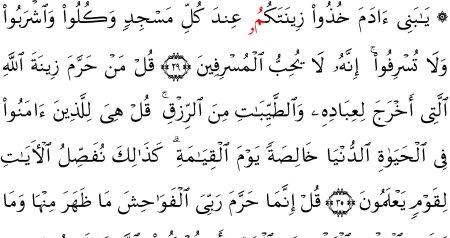 ۞ يَٰبَنِى ءَادَمَ خُذُوا۟ زِينَتَكُمُۥ عِندَ كُلِّ مَسْجِدٍ وَكُلُوا۟ وَٱشْرَبُوا۟
وَلَا تُسْرِفُوا۟ ۚ إِنَّهُۥ لَا يُحِبُّ ٱلْمُسْرِفِينَ ﴿٢٩﴾ قُلْ مَنْ حَرَّمَ زِينَةَ ٱللَّهِ
ٱلَّتِى أَخْرَجَ لِعِبَادِهِۦ وَٱلطَّيِّبَٰتِ مِنَ ٱلرِّزْقِ ۚ قُلْ هِىَ لِلَّذِينَ ءَامَنُوا۟
فِى ٱلْحَيَوٰةِ ٱلدُّنْيَا خَالِصَةً يَوْمَ ٱلْقِيَٰمَةِ ۗ كَذَٰلِكَ نُفَصِّلُ ٱلْأٓيَٰتِ
لِقَوْمٍ يَعْلَمُونَ ﴿٣٠﴾ قُلْ إِنَّمَا حَرَّمَ رَبِّىَ ٱلْفَوَٰحِشَ مَا ظَهَرَ مِنْهَا وَمَا